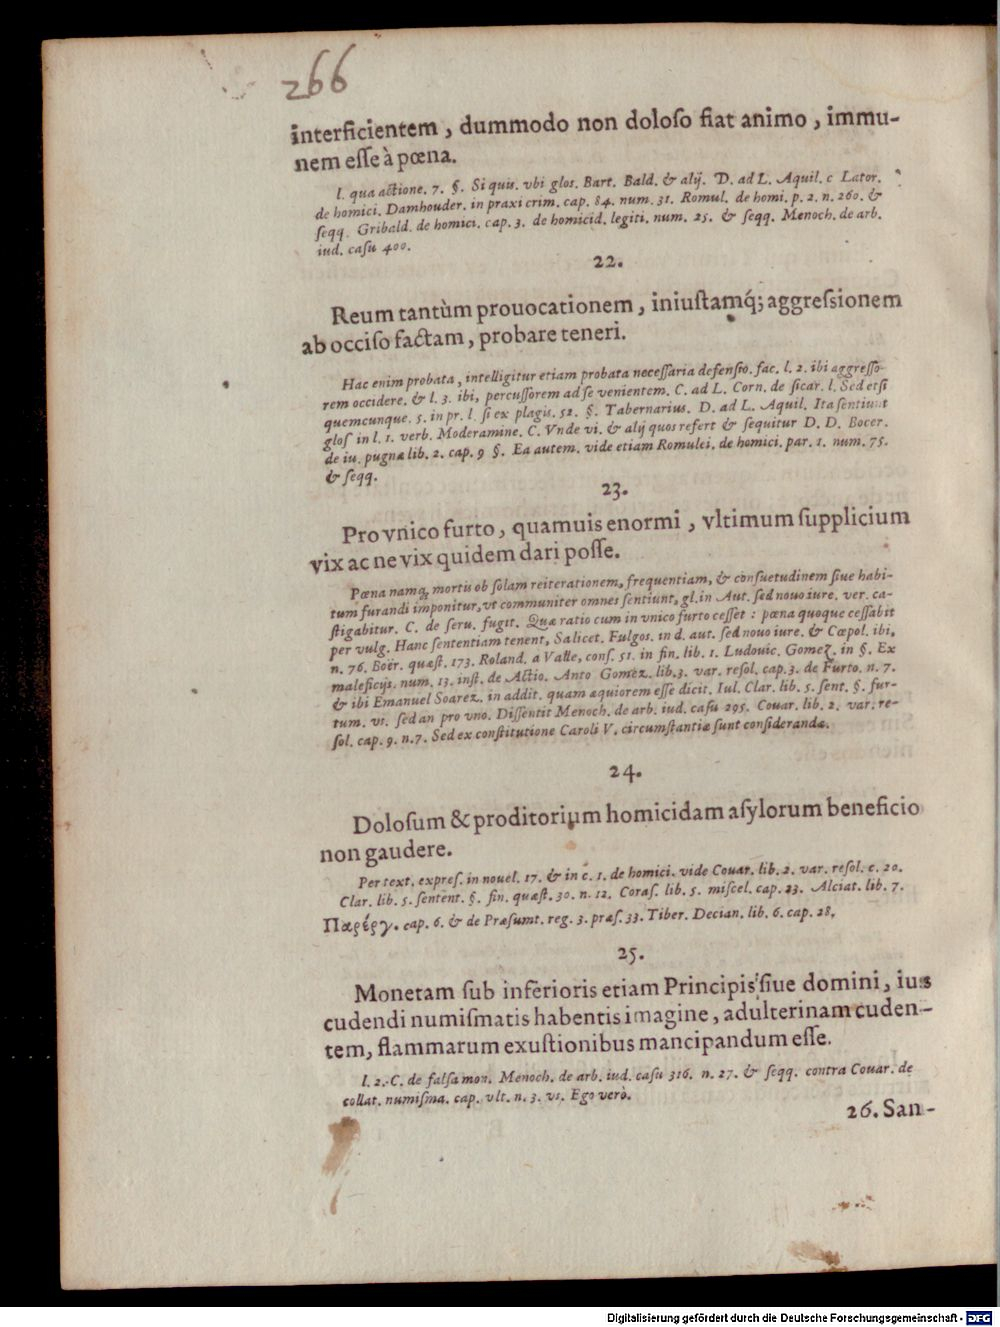 266
interficientem, dummodo non doloſo fiat animo, immu-
nem eſſe à pœna.
l. qua actione. 7. §. Si quis. vbi glos. Bart. Bald. & alij. D. ad L. Aquil. c Lator.
de homici. Damhouder. in praxi crim. cap. 84. num. 31. Romul. de homi. p. 2. n. 260. &
ſeqq. Gribald. de homici. cap. 3. de homicid. legiti. num. 25. & ſeqq. Menoch. de arb.
iud. caſu 400.
22.
Reum tantùm prouocationem, iniuſtamq́; aggreſsionem
ab occiſo factam, probare teneri.
Hac enim probata, intelligitur etiam probata neceſſaria defenſio. fac. l. 2. ibi aggreſſo-
rem occidere. & l. 3. ibi, percuſſorem ad ſe venientem. C. ad L. Corn. de ſicar. l. Sed etſi
quemcunque. 5. in pr. l. ſi ex plagis. 52. §. Tabernarius. D. ad L. Aquil. Ita ſentiunt
gloſ in l. 1. verb. Moderamine. C. Vnde vi. & alij quos refert & ſequitur D. D. Bocer.
de iu. pugnæ lib. 2. cap. 9 §. Ea autem. vide etiam Romulei. de homici. par. 1. num. 75.
& ſeqq.
23.
Pro vnico furto, quamuis enormi, vltimum ſupplicium
vix ac ne vix quidem dari poſſe.
Pœna namq́, mortis ob ſolam reiterationem, frequentiam, & conſuetudinem ſiue habi-
tum furandi imponitur, vt communiter omnes ſentiunt, gl. in Aut. ſed nouo iure. ver. ca-
ſtigabitur. C. de ſeru. fugit. Quæ ratio cum in vnico furto ceſſet: pœna quoque ceſſabit
per vulg. Hanc ſententiam tenent, Salicet. Fulgos. in d. aut. ſed nouo iure. & Cæpol. ibi,
n. 76. Boër. quæſt. 173. Roland. a Valle, conſ. 51. in fin. lib. 1. Ludouic. Gomez. in §. Ex
maleficijs. num. 13. inſt. de Actio. Anto Gomez. lib. 3. var. reſol. cap. 3. de Furto. n. 7.
& ibi Emanuel Soarez. in addit. quam æquiorem eſſe dicit, Iul. Clar. lib. 5. ſent. §. fur-
tum. vt. ſed an pro vno. Diſſentit Menoch. de arb. iud. caſu 295. Couar. lib. 2. var. re-
ſol. cap. 9. n. 7. Sed ex conſtitutione Caroli V. circumſtantiæ ſunt conſiderandæ.
24.
Doloſum & proditorium homicidam aſylorum beneficio
non gaudere.
Per text. expreſ. in nouel. 17. & in c. 1. de homici. vide Couar. lib. 2. var. reſol. c. 20.
Clar. lib. 5. ſentent. §. fin. quæſt. 30. n. 12. Coraſ. lib. 5. miſcel. cap. 23. Alciat. lib. 7.
Παρέργ. cap. 6. & de Præſumt. reg. 3. præſ. 33. Tiber. Decian. lib. 6. cap. 28.
25.
Monetam ſub inferioris etiam Principis ſiue domini, ius
cudendi numiſmatis habentis imagine, adulterinam cuden-
tem, flammarum exuſtionibus mancipandum eſſe.
l. 2. C. de falſa mon. Menoch. de arb. iud. caſu 316. n. 27. & ſeqq. contra Couar. de
collat. numiſma. cap. vlt. n. 3. vs. Ego verò.
26. San-
Digitalisierung gefördert durch die Deutsche Forschungsgemeinschaft - DFG